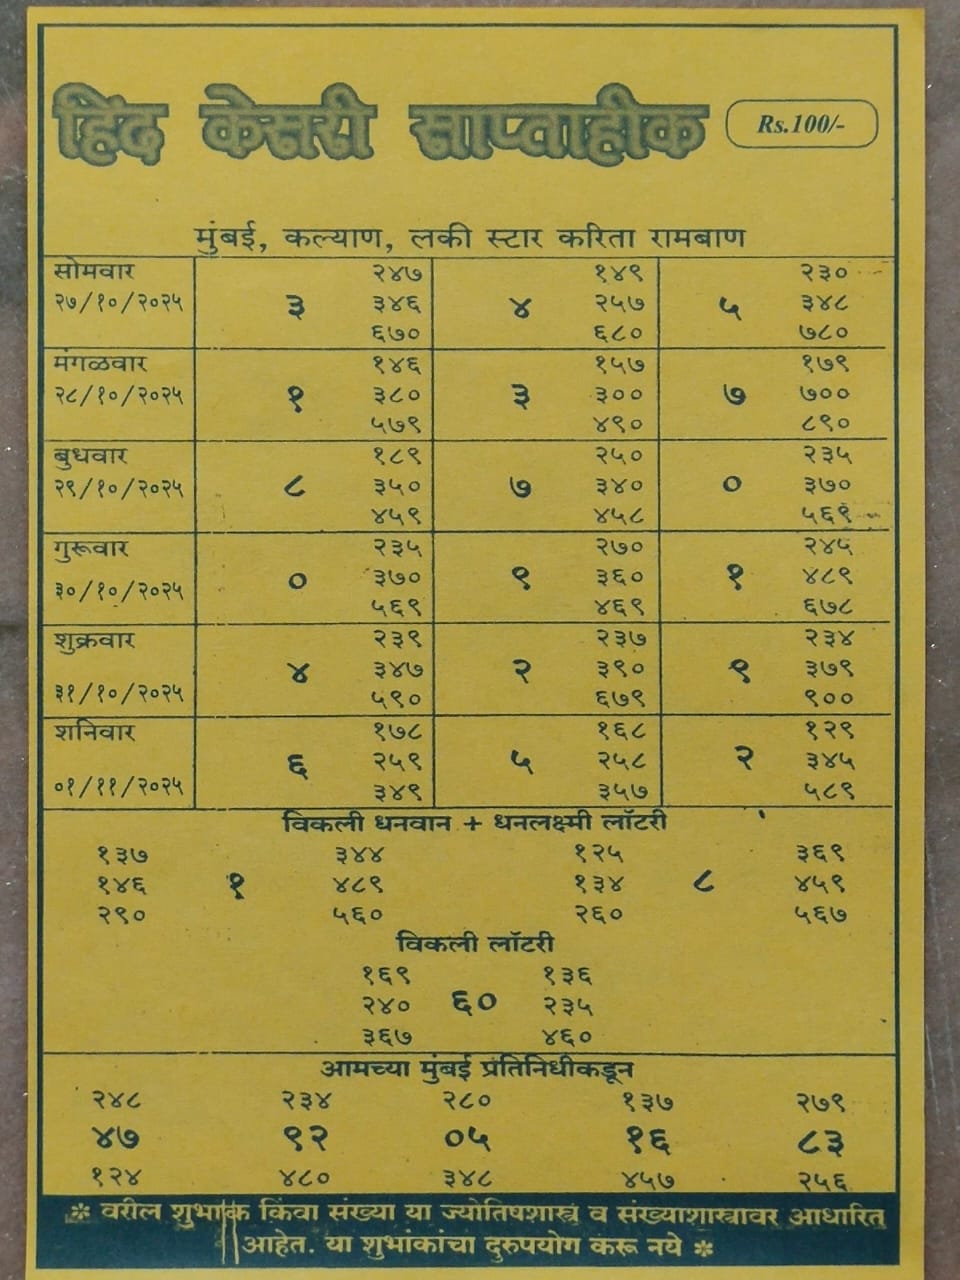 हिंद केसरी साप्ताहीक Rs.100/-
मुंबई, कल्याण, लकी स्टार करिता रामबाण
सोमवार २४७ १४९ २३०
२७/१०/२०२५ ३ ३४६ ४ २५७ ५ ३४८
६७० ६८० ७८०
मंगळवार १४६ १५७ १७९
२८/१०/२०२५ १ ३८० ३ ३०० ७ ७००
५७९ ४९० ८९०
बुधवार १८९ २५० २३५
२९/१०/२०२५ ८ ३५० ७ ३४० ० ३७०
४५९ ४५८ ५६९
गुरूवार २३५ २७० २४५
३०/१०/२०२५ ० ३७० ९ ३६० १ ४८९
५६९ ४६९ ६७८
शुक्रवार २३९ २३७ २३४
३१/१०/२०२५ ४ ३४७ २ ३९० ९ ३७९
५९० ६७९ ९००
शनिवार १७८ १६८ १२९
०१/११/२०२५ ६ २५९ ५ २५८ २ ३४५
३४९ ३५७ ५८९
विकली धनवान + धनलक्ष्मी लॉटरी
१३७ ३४४ १२५ ३६९
१४६ १ ४८९ १३४ ८ ४५९
२९० ५६० २६० ५६७
विकली लॉटरी
१६९ १३६
२४० ६० २३५
३६७ ४६०
आमच्या मुंबई प्रतिनिधीकडून
२४८ २३४ २८० १३७ २७९
४७ ९२ ०५ १६ ८३
१२४ ४८० ३४८ ४५७ २५६
* वरील शुभांक किंवा संख्या या ज्योतिषशास्त्र व संख्याशास्त्रावर आधारित
आहेत. या शुभांकांचा दुरुपयोग करू नये *